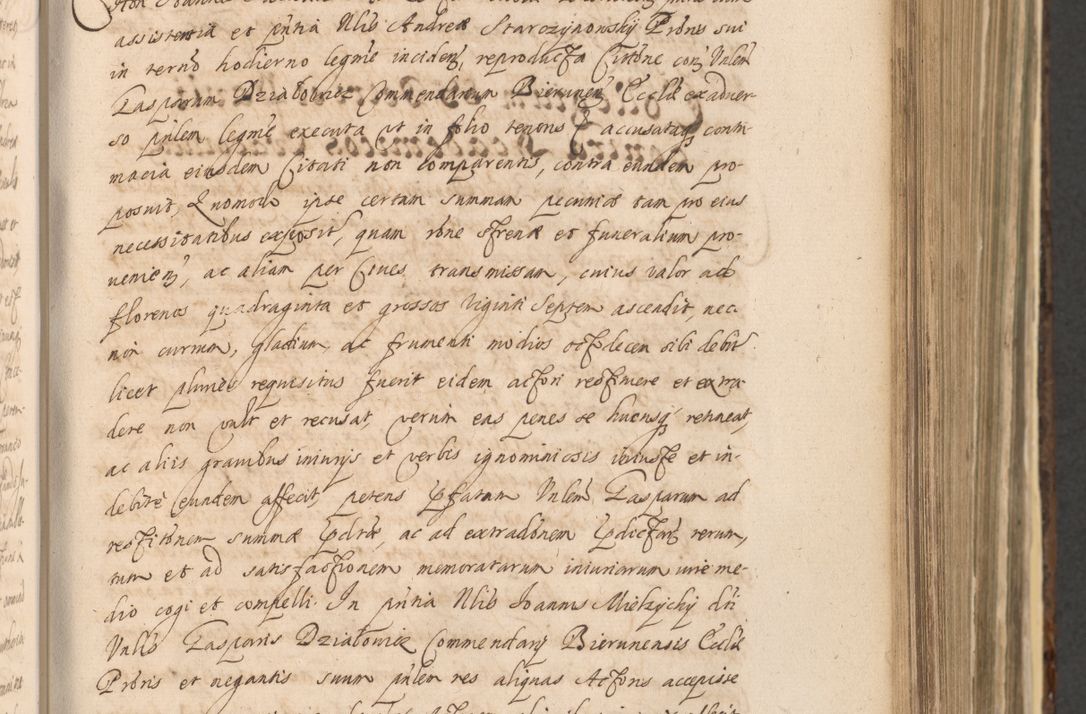 assistentia et pntia Nlis Andreæ Starozynowskj Pronis sui
in termo hodierno legme inciden, reproducta Citone con Vnlem
Gasparum Dziatowicz Commendarium Bierunen Ecclæ ex aduer-
so pnlem legme executa ut in folio tenoris accusataq conti
macia eiusdem Citati non comparentis, contra eundem pro-
posuit, Quomodo ipse certam summam pecuniæ tam pro eius
necessitatibus exposit, quam rone et funeralium pro-
uenien, ac aliam per Ciues transmissam, cuius valor ad
florenos quadraginta et grossos Viginti Septem ascendit, nec
non currum, gladium, ac frumenti modios octodecem sibi debit
licet pluries requisitus fuerit eidem actori restituere et extra-
dere non vult et recusat, verum eas penes se hucusq retineat,
ac aliis grauibus iniurijs et verbis ignominiosis iniuste et in-
debite eundem affecit, petens pfatum Vnlem Gasparum ad
restitonem summæ pditæ, ac ad extradonem pdictar rerum,
tum et ad satisfactionem memoratarum iniuriarum iuris me-
dio cogi et compelli. In pntia Nlis Joannis Mielzyckj dti
Vnlis Gasparis Dziatowicz Commendarij Bierunensis Ecclæ
Pronis et negantis suum pnlem res aliquas Actoris accepisse